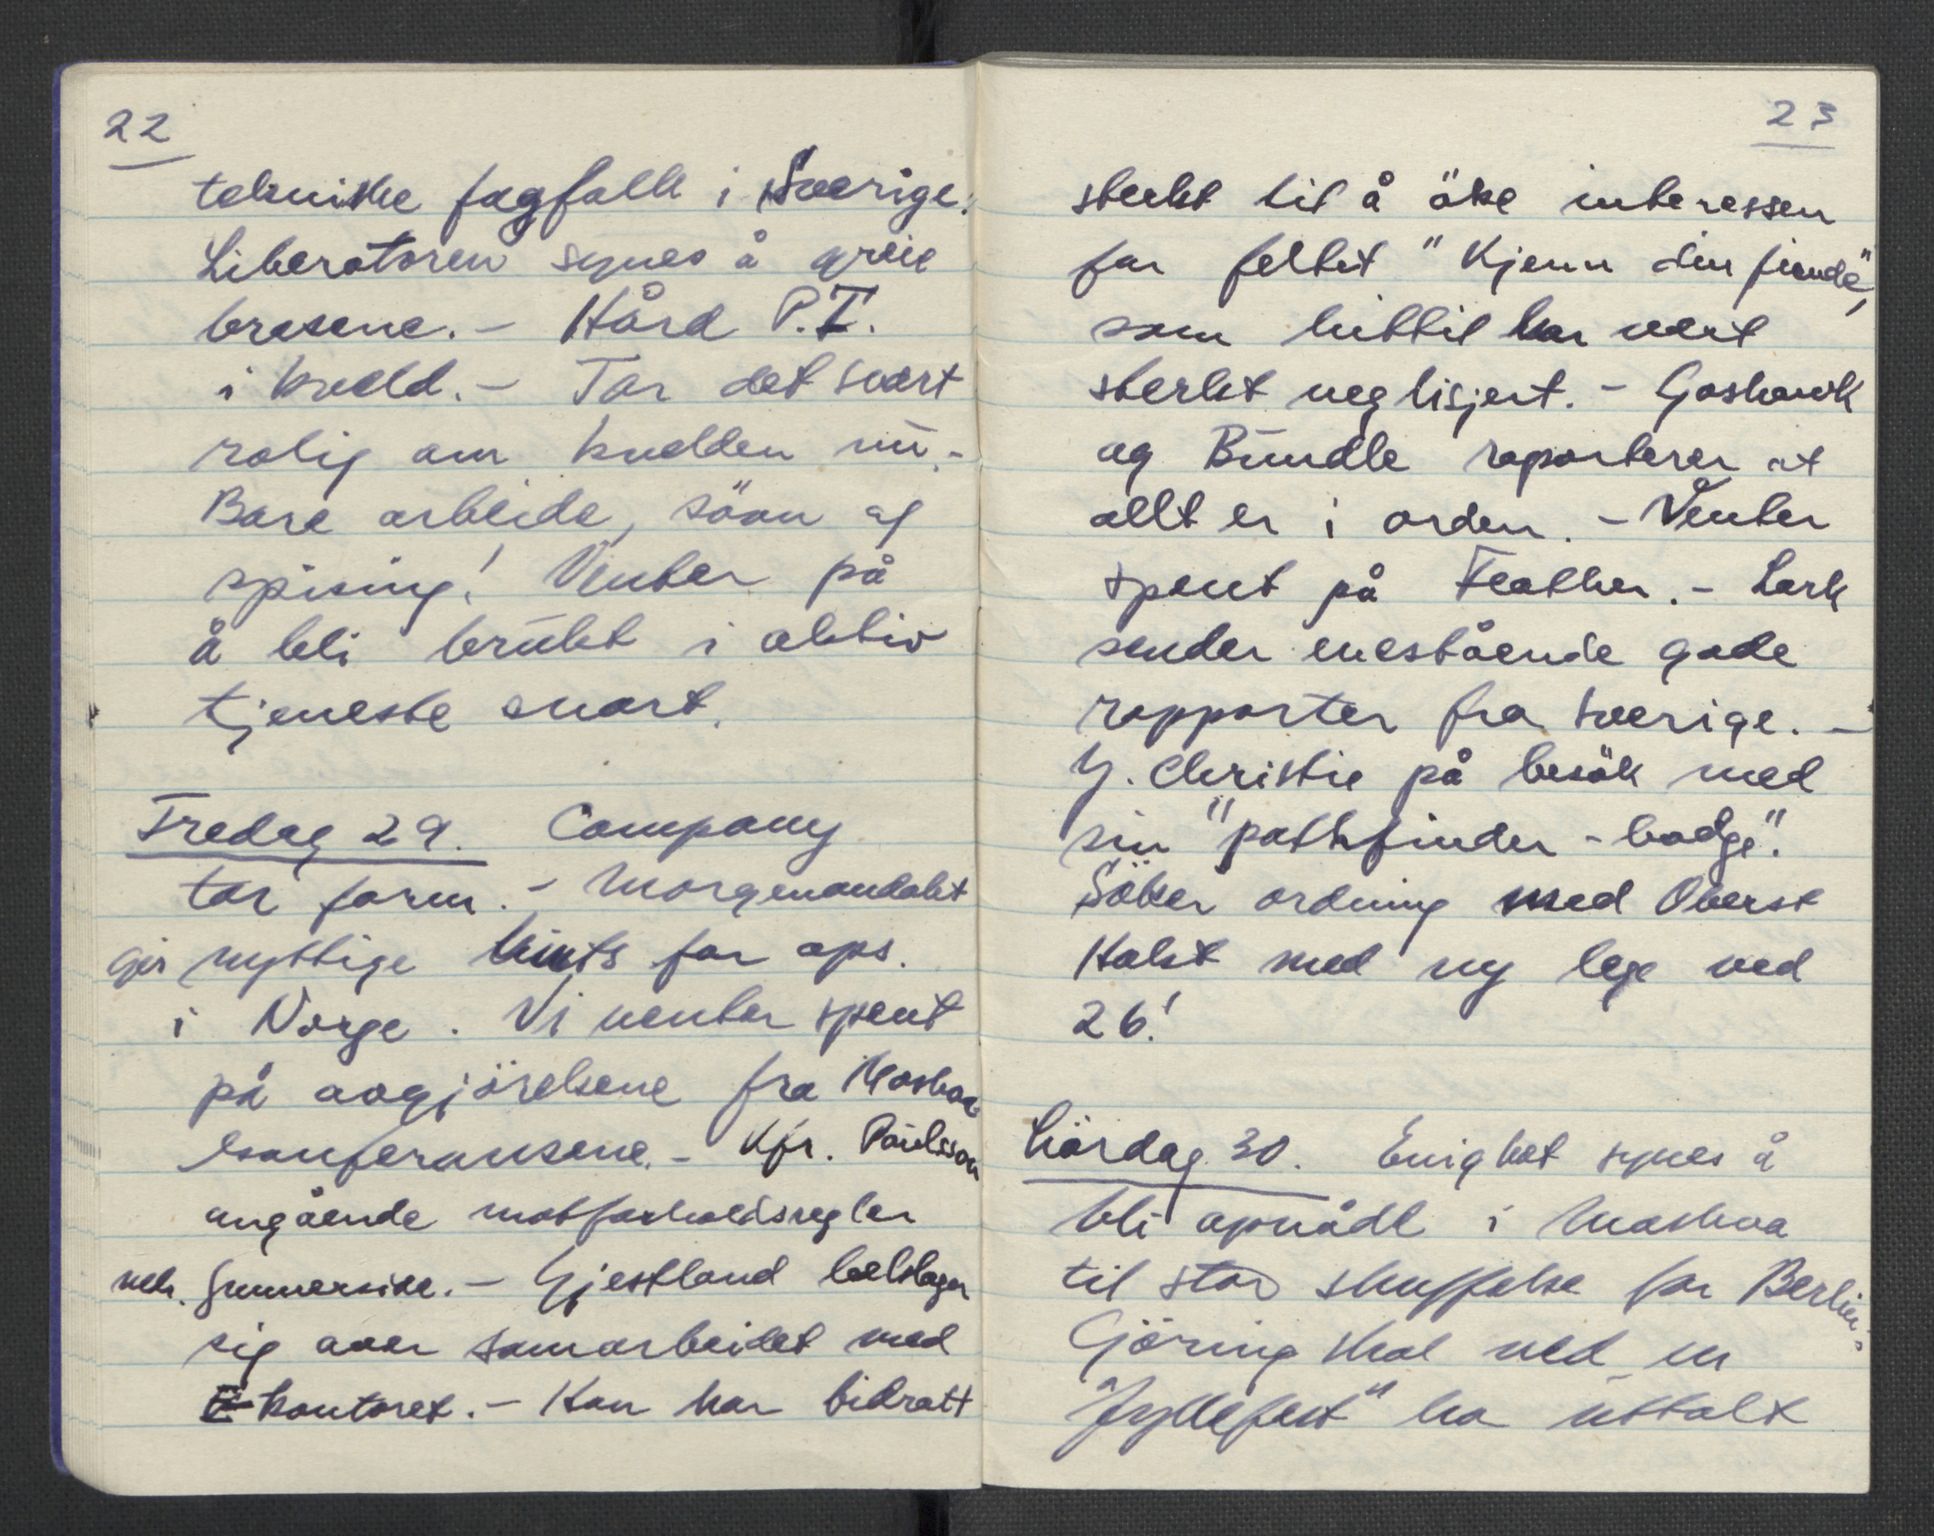 22
tekniske fagfolk i Sverige.
Liberatoren synes å greie
brasene. - Hård P.T.
i kveld. - Tar det svært
rolig om kvelden nu. -
Bare arbeide, sövn og
spising! Venter på
å bli brukt i aktiv
tjeneste snart.
Fredag 29. Company
tar form. - Morgenandakt
gir nyttige hints for ops.
i Norge. Vi venter spent
på avgjörelsene fra Moskva
konferansene. - Kfr. Paulsson
angående motforholdsregler
vedr. Gunnerside. - Gjestland beklager
sig over samarbeidet med
E-kontoret. - Han har bidratt
23
sterkt til å öke interessen
for feltet "Kjenn din fiende",
som hittil har vært
sterkt neglisjert. - Goshawk
og Bundle raporterer at
allt er i orden. - Venter
spent på Feather. - Lark
sender enestående gode
rapporter fra Sverige. -
Y. Christie på besök med
sin "pathfinder-badge".
Söker ordning med Oberst
Holst med ny lege ved
26!
Lördag 30. Enighet synes å
bli opnådd i Moskva
til stor skuffelse for Berlin. -
Göring skal ved en
"fyllefest" ha uttalt